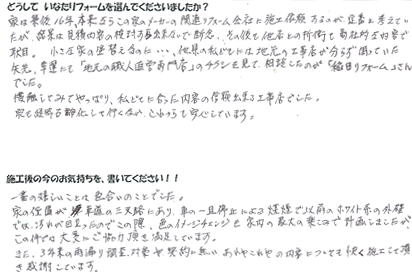 どうして いなたリフォームを選んでくださいましたか?
家は築後16年、本来ならこの家のメーカーの関連リフォーム会社に施工依頼するのが、定番と考えてい
たが、結果は見積内容の検討する余地ないで断念、その後も他店との折衝も
駄目。小さな家の塗替えなのに…、他県の私どもには地元の工事店が分らず困っていた
矢先、幸運にも「地元の職人直営専門店」のチラシを見て、相談したのが「稲田リフォーム」さん
でした。
接触してみてやっぱり、私どもに合った内容の信頼出来る工事店でした。
家も経年老朽化して行くが、これからも安心しています。
施工後の今のお気持ちを、書いてください!!
一番の嬉しいことは色合いのことでした。
家の位置が車道の三叉路にあり、車の一旦停止による煙煙で以前のホワイト系の外壁
では、汚れが目立ったのでこの際、色のイメージチェンジを家内の最大の要望で計画しましたが、
この件では大変にご協力頂き満足しています。
また、3年来の雨漏り調査、対策や契約に無いあれやこれやの内容についても快く施工して頂
き感謝しています。